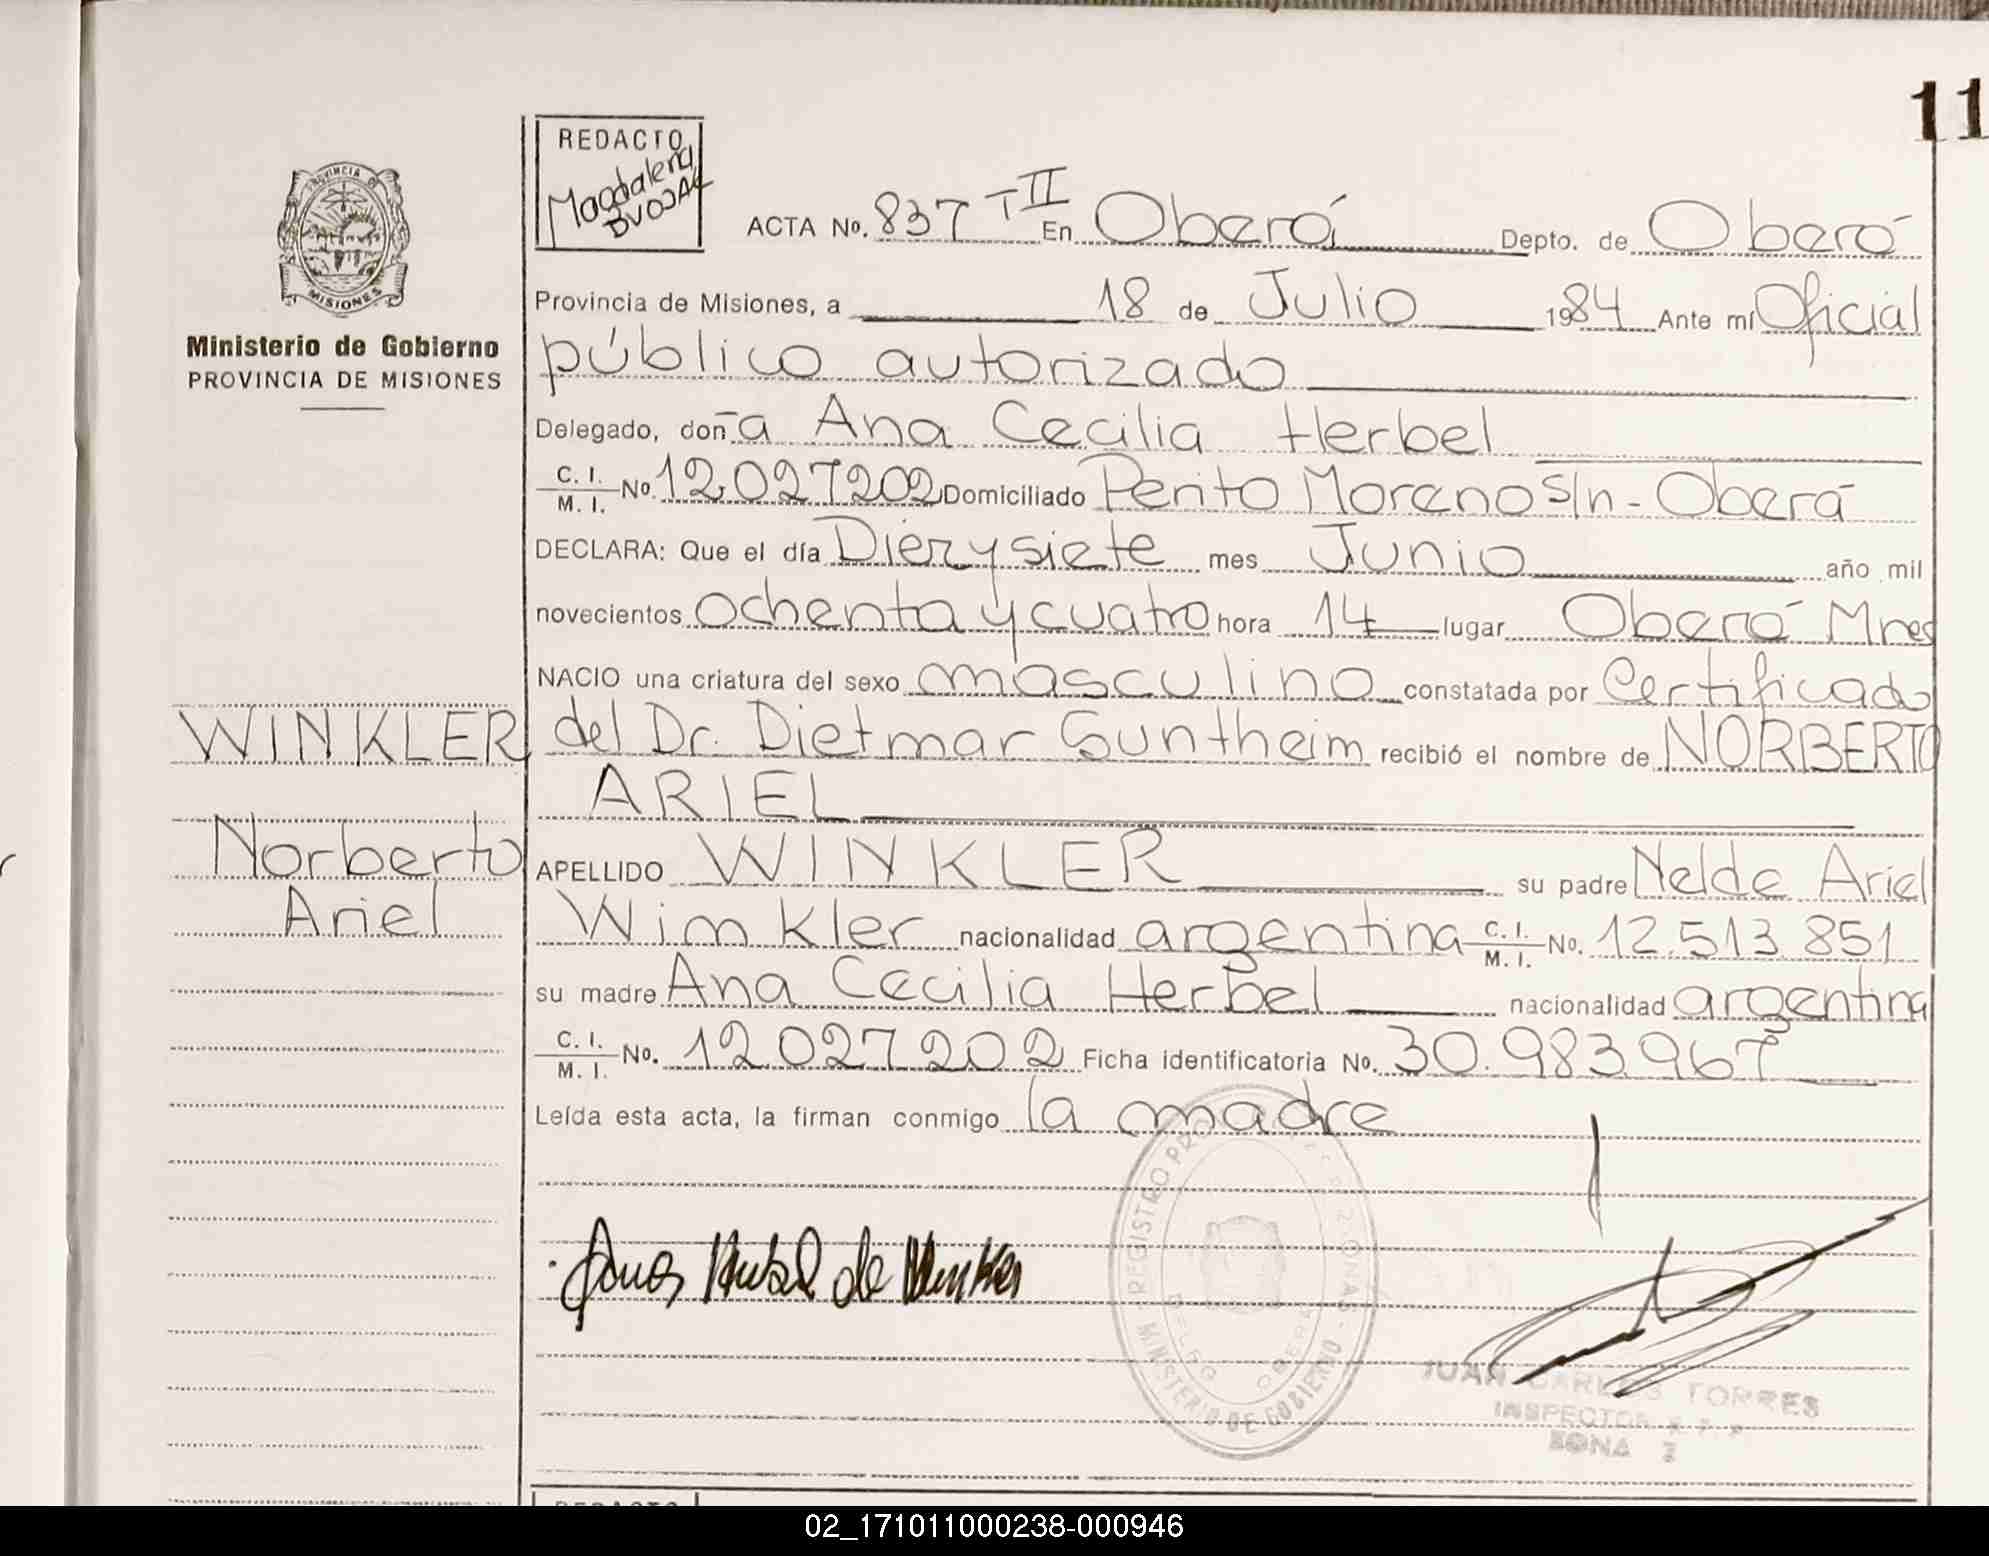 11
REDACTO
Magdalena
ACTA No. 837 T II En Oberá Depto. de Oberá
PROVINCIA DE
MISIONES
Ministerio de Gobierno
PROVINCIA DE MISIONES
Provincia de Misiones, a 18 de Julio 1984 Ante mí Oficial
público autorizado
Delegado, doña Ana Cecilia Herbel
C. I.
M. I. No. 12.027202 Domiciliado Perito Moreno S/n - Oberá
DECLARA: Que el día Diezysiete mes Junio año mil
novecientos ochenta y cuatro hora 14 lugar Oberá Mnes
NACIO una criatura del sexo masculino constatada por Certificado
WINKLER
del Dr. Dietmar Guntheim recibió el nombre de NORBERTO
ARIEL
Norberto
Ariel
APELLIDO WINKLER su padre Nelde Ariel
Winkler nacionalidad argentina C. I.
M. I. No. 12.513.851
su madre Ana Cecilia Herbel nacionalidad argentina
C. I.
M. I. No. 12.027.202 Ficha identificatoria No. 30.983.967
Leída esta acta, la firman conmigo la madre
Herbel de Winkler
REGISTRO PRO PERSONAS
MINISTERIO DE GOBIERNO
DELEG OBERA
JUAN CARLOS TORRES
INSPECTOR
ZONA
REDACTO
02_171011000238-000946